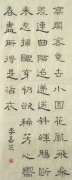 高閣客竟去小園花亂飛參
差連曲陌迢遞送斜暉腸斷
未忍掃眼穿仍欲歸芳心向
春盡所得是沾衣